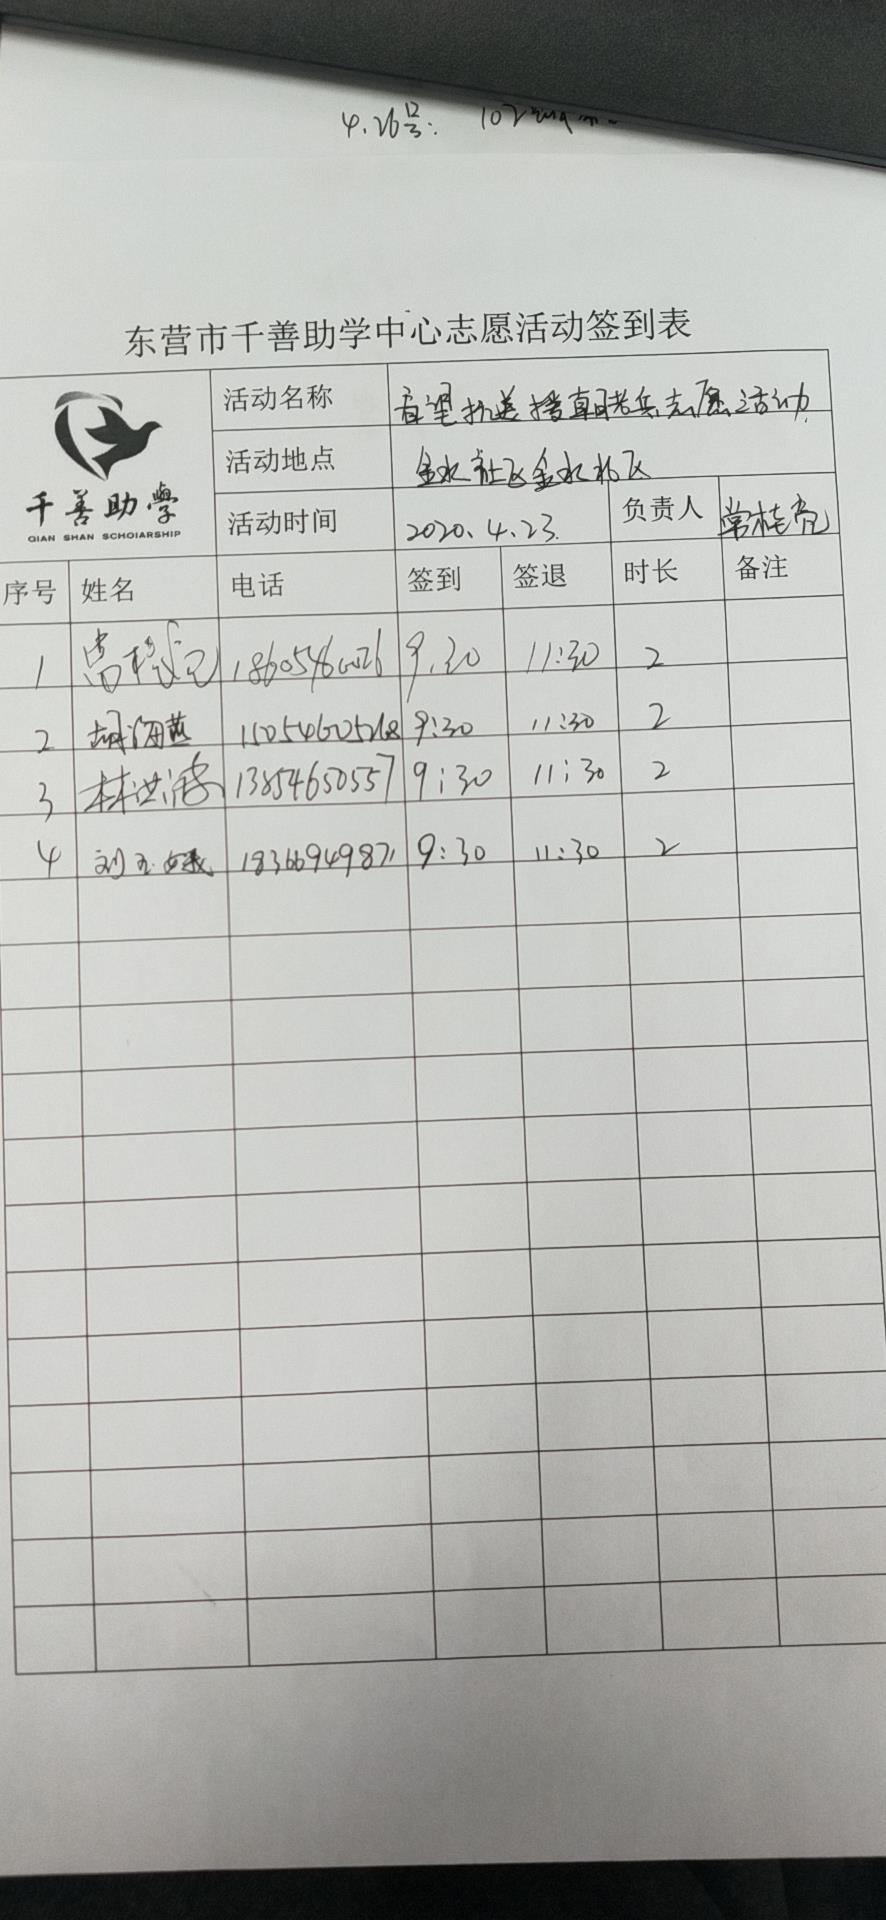 4.26号:
东营市千善助学中心志愿活动签到表
千善助學
QIAN SHAN SCHOIARSHIP
活动名称 看望抗美援朝老兵志愿活动
活动地点 金水社区金水北区
活动时间 2020.4.23. 负责人 常桂亮
序号 姓名 电话 签到 签退 时长 备注
1 9.30 11:30 2
2 胡海燕 9:30 11:30 2
3 13854650557 9:30 11:30 2
4 刘玉娥 9:30 11:30 2